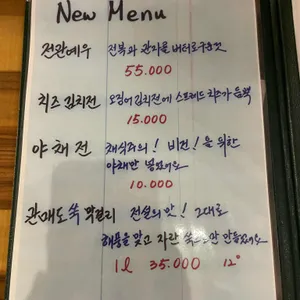 New Menu
전관예우 전복과 관자를 버터로구운것
55.000
치즈 김치전 오징어김치전에 스프레드 치즈가 듬뿍
15.000
야채전 채식주의! 비건! 을 위한
야채만 넣었어요
10.000
관매도쑥 막걸리 전설의 맛! 그대로
해풍을 맞고 자란 쑥으로만 만들었어요
1l 35.000 12°